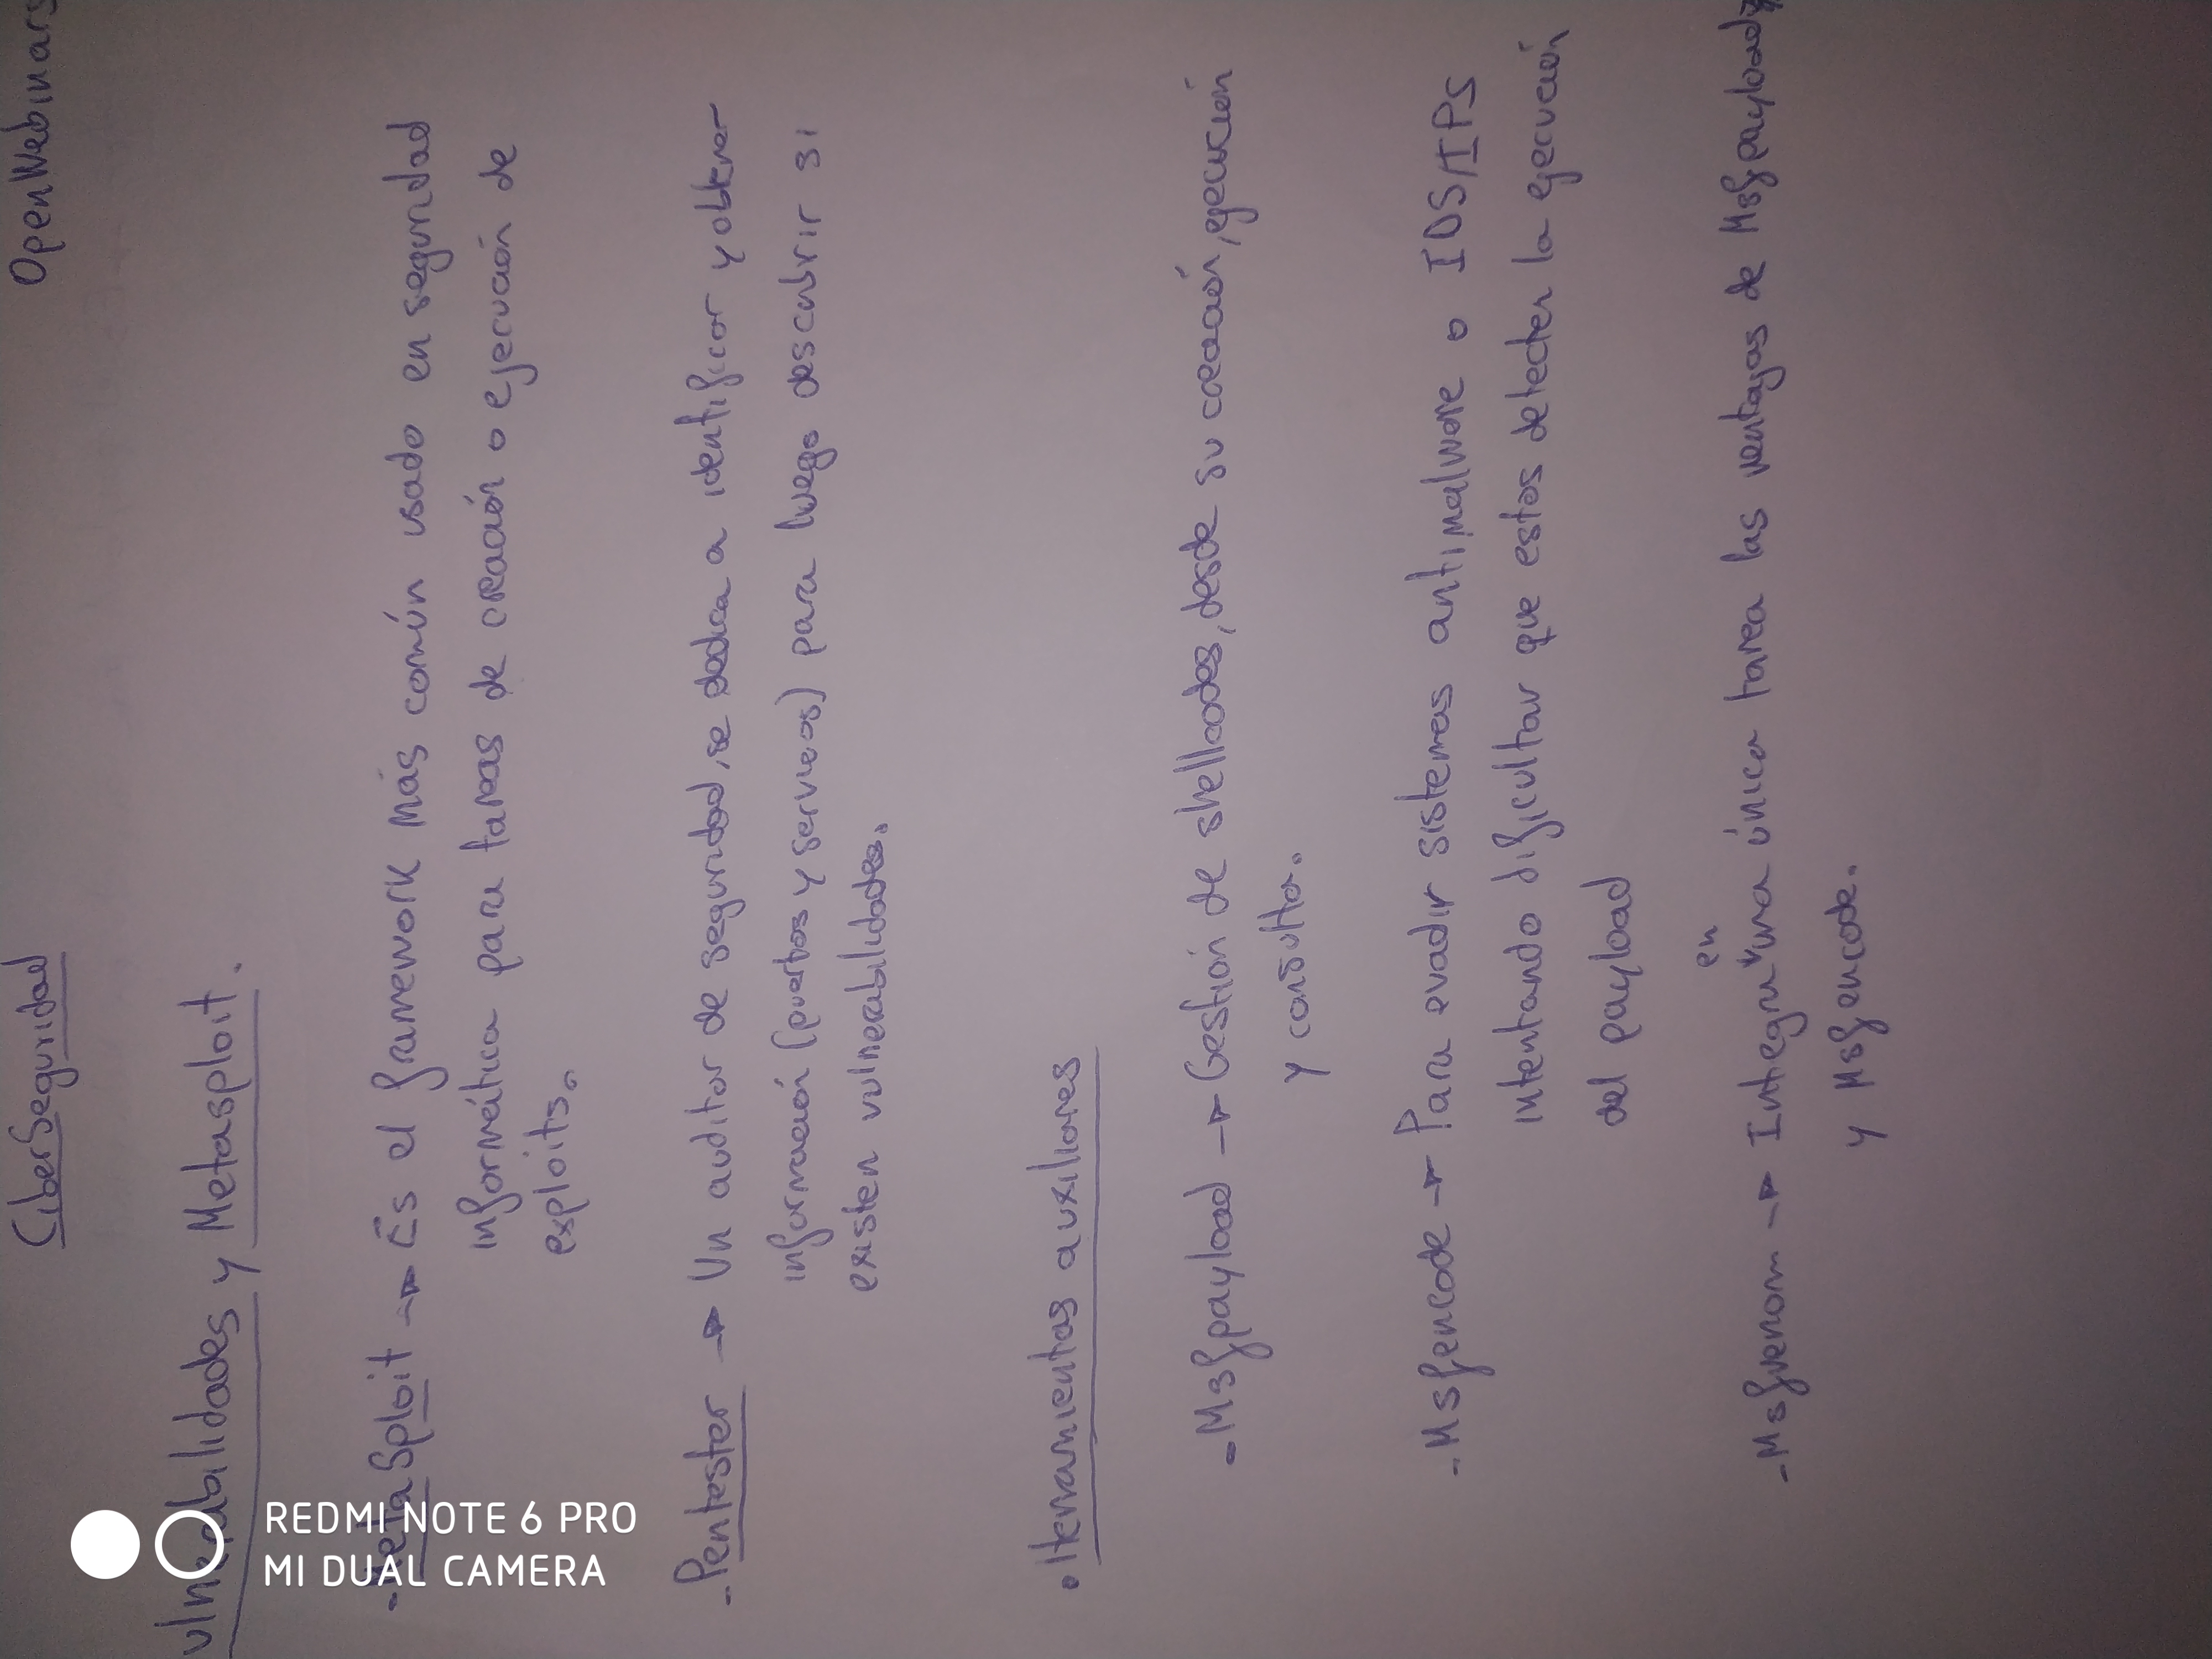 CiberSeguridad
OpenWebinars
vulnerabilidades y Metasploit.
- MetaSploit → Es el framework más común usado en seguridad
informática para tareas de creación o ejecución de
exploits.
- Pentester → Un auditor de seguridad, se dedica a identificar y obtener
información (puertos y servicios) para luego descubrir si
existen vulnerabilidades.
• Herramientas auxiliares
- Msfpayload → Gestión de shellcodes, desde su creación, ejecución
y consulta.
- Msfencode → Para evadir sistemas antimalware o IDS/IPS
intentando dificultar que estos detecten la ejecución
del payload
- Msfvenom → Integra en una única tarea las ventajas de Msfpayload
y Msfencode.
REDMI NOTE 6 PRO
MI DUAL CAMERA